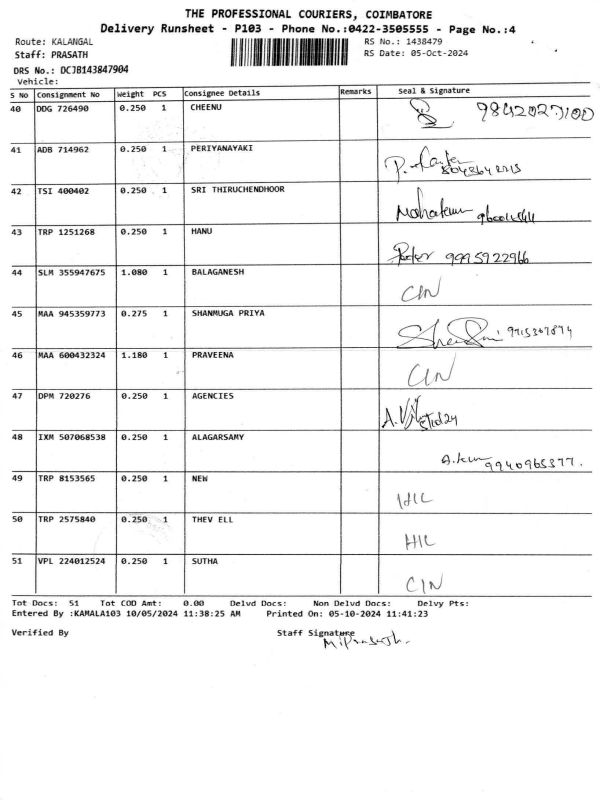 THE PROFESSIONAL COURIERS, COIMBATORE
Delivery Runsheet - P103 - Phone No.:0422-3505555 - Page No.:4
Route: KALANGAL RS No.: 1438479
Staff: PRASATH RS Date: 05-Oct-2024
DRS No.: DCJB143847904
Vehicle:
S No Consignment No Weight PCS Consignee Details Remarks Seal & Signature
40 DDG 726490 0.250 1 CHEENU
41 ADB 714962 0.250 1 PERIYANAYAKI
42 TSI 400402 0.250 1 SRI THIRUCHENDHOOR
43 TRP 1251268 0.250 1 HANU 9995922966
44 SLM 355947675 1.080 1 BALAGANESH CIN
45 MAA 945359773 0.275 1 SHANMUGA PRIYA
46 MAA 600432324 1.180 1 PRAVEENA CIN
47 DPM 720276 0.250 1 AGENCIES
48 IXM 507068538 0.250 1 ALAGARSAMY 9940965377.
49 TRP 8153565 0.250 1 NEW HIL
50 TRP 2575840 0.250 1 THEV ELL HIL
51 VPL 224012524 0.250 1 SUTHA CIN
Tot Docs: 51 Tot COD Amt: 0.00 Delvd Docs: Non Delvd Docs: Delvy Pts:
Entered By :KAMALA103 10/05/2024 11:38:25 AM Printed On: 05-10-2024 11:41:23
Verified By Staff Signature